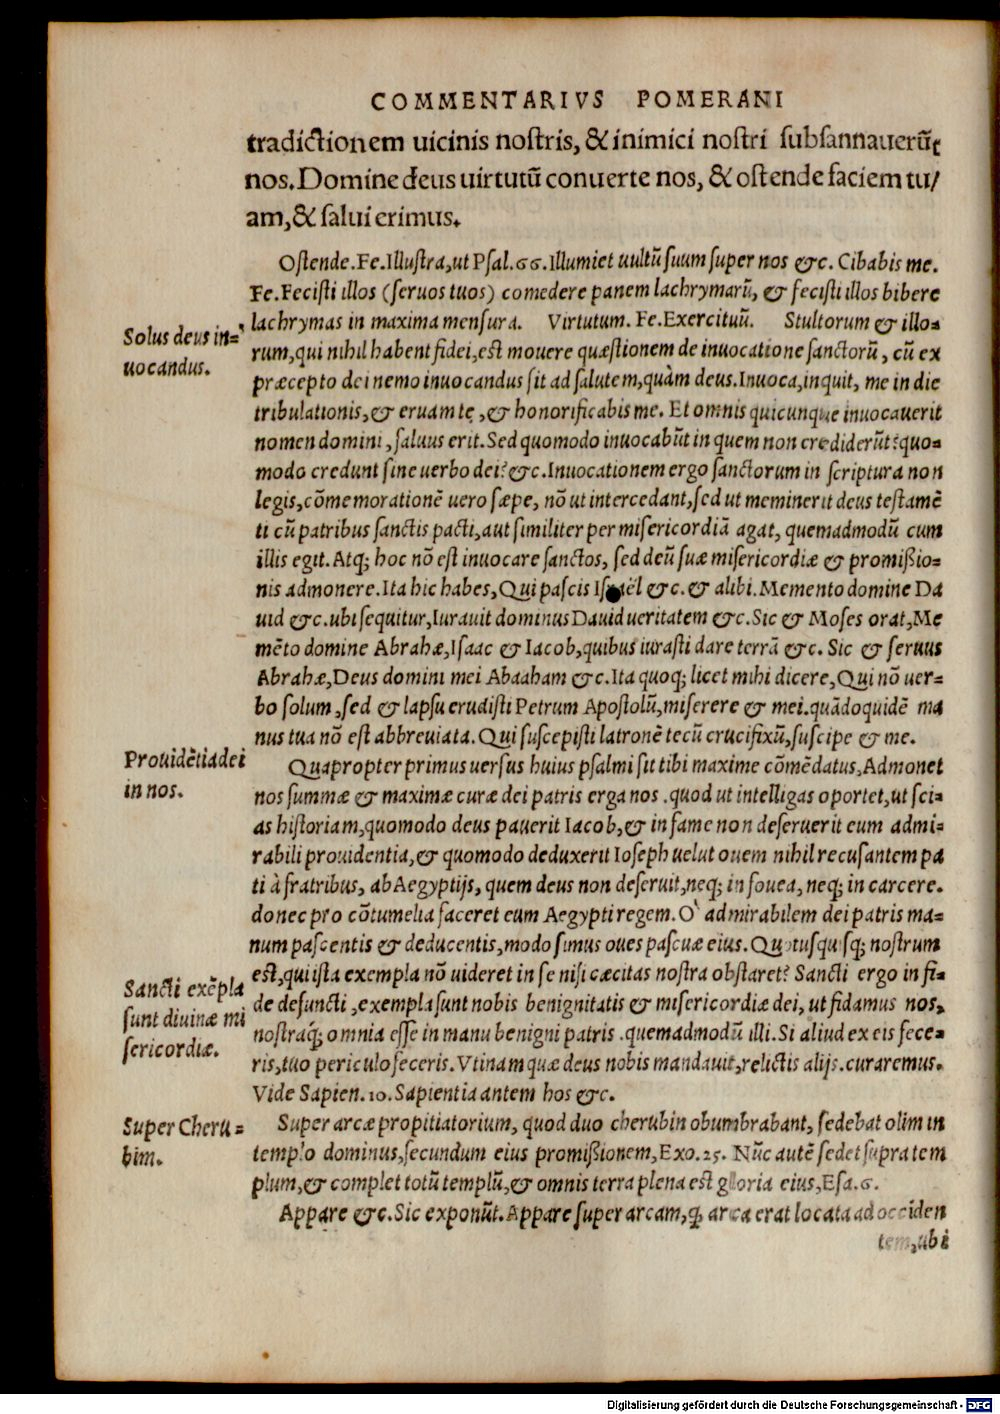 COMMENTARIVS POMERANI
tradictionem uicinis nostris, & inimici nostri subsannauerūt
nos. Domine deus uirtutū conuerte nos, & ostende faciem tu/
am, & salui erimus.
Ostende. Fe. Illustra, ut Psal. 66. Illumiet uultū suum super nos &c. Cibabis me.
Fe. Fecisti illos (seruos tuos) comedere panem lachrymarū, & fecisti illos bibere
lachrymas in maxima mensura. Virtutum. Fe. Exercituū. Stultorum & illo=
Solus deus in=
uocandus.
rum, qui nihil habent fidei, est mouere quæstionem de inuocatione sanctorū, cū ex
præcepto dei nemo inuocandus sit ad salutem, quàm deus. Inuoca, inquit, me in die
tribulationis, & eruam te, & honorificabis me. Et omnis quicunque inuocauerit
nomen domini, saluus erit. Sed quomodo inuocabūt in quem non crediderūt? quo=
modo credunt sine uerbo dei? &c. Inuocationem ergo sanctorum in scriptura non
legis, cōmemorationē uero sæpe, nō ut intercedant, sed ut meminerit deus testamē
ti cū patribus sanctis pacti, aut similiter per misericordiā agat, quemadmodū cum
illis egit. Atq; hoc nō est inuocare sanctos, sed deū suæ misericordiæ & promißio=
nis admonere. Ita hic habes, Qui pascis Israël &c. & alibi. Memento domine Da
uid &c. ubi sequitur, Iurauit dominus Dauid ueritatem &c. Sic & Moses orat, Me
mēto domine Abrahæ, Isaac & Iacob, quibus iurasti dare terrā &c. Sic & seruus
Abrahæ, Deus domini mei Abaaham &c. Ita quoq; licet mihi dicere, Qui nō uer=
bo solum, sed & lapsu erudisti Petrum Apostolū, miserere & mei. quādoquidē ma
nus tua nō est abbreuiata. Qui suscepisti latronē tecū crucifixū, suscipe & me.
Prouidētia dei
in nos.
Quapropter primus uersus huius psalmi sit tibi maxime cōmēdatus, Admonet
nos summæ & maximæ curæ dei patris erga nos. quod ut intelligas oportet, ut sci=
as historiam, quomodo deus pauerit Iacob, & in fame non deseruerit eum admi=
rabili prouidentia, & quomodo deduxerit Ioseph uelut ouem nihil recusantem pa
ti à fratribus, ab Aegyptijs, quem deus non deseruit, neq; in fouea, neq; in carcere.
donec pro cōtumelia faceret eum Aegypti regem. O' admirabilem dei patris ma=
num pascentis & deducentis, modo simus oues pascuæ eius. Quotusquisq; nostrum
est, qui ista exempla nō uideret in se nisi cæcitas nostra obstaret? Sancti ergo in fi=
Sancti exēpla
sunt diuinæ mi
sericordiæ.
de defuncti, exempla sunt nobis benignitatis & misericordiæ dei, ut fidamus nos,
nostraq; omnia esse in manu benigni patris. quemadmodū illi. Si aliud ex eis fece=
ris, tuo periculo feceris. Vtinam quæ deus nobis mandauit, relictis alijs. curaremus.
Vide Sapien. 10. Sapientia antem hos &c.
Super Cheru=
bim.
Super arcæ propitiatorium, quod duo cherubin obumbrabant, sedebat olim in
templo dominus, secundum eius promißionem, Exo. 25. Nūc autē sedet supra tem
plum, & complet totū templū, & omnis terra plena est gloria eius, Esa. 6.
Appare &c. Sic exponūt. Appare super arcam, q; arca erat locata ad occiden
tem, ubi
Digitalisierung gefördert durch die Deutsche Forschungsgemeinschaft - DFG